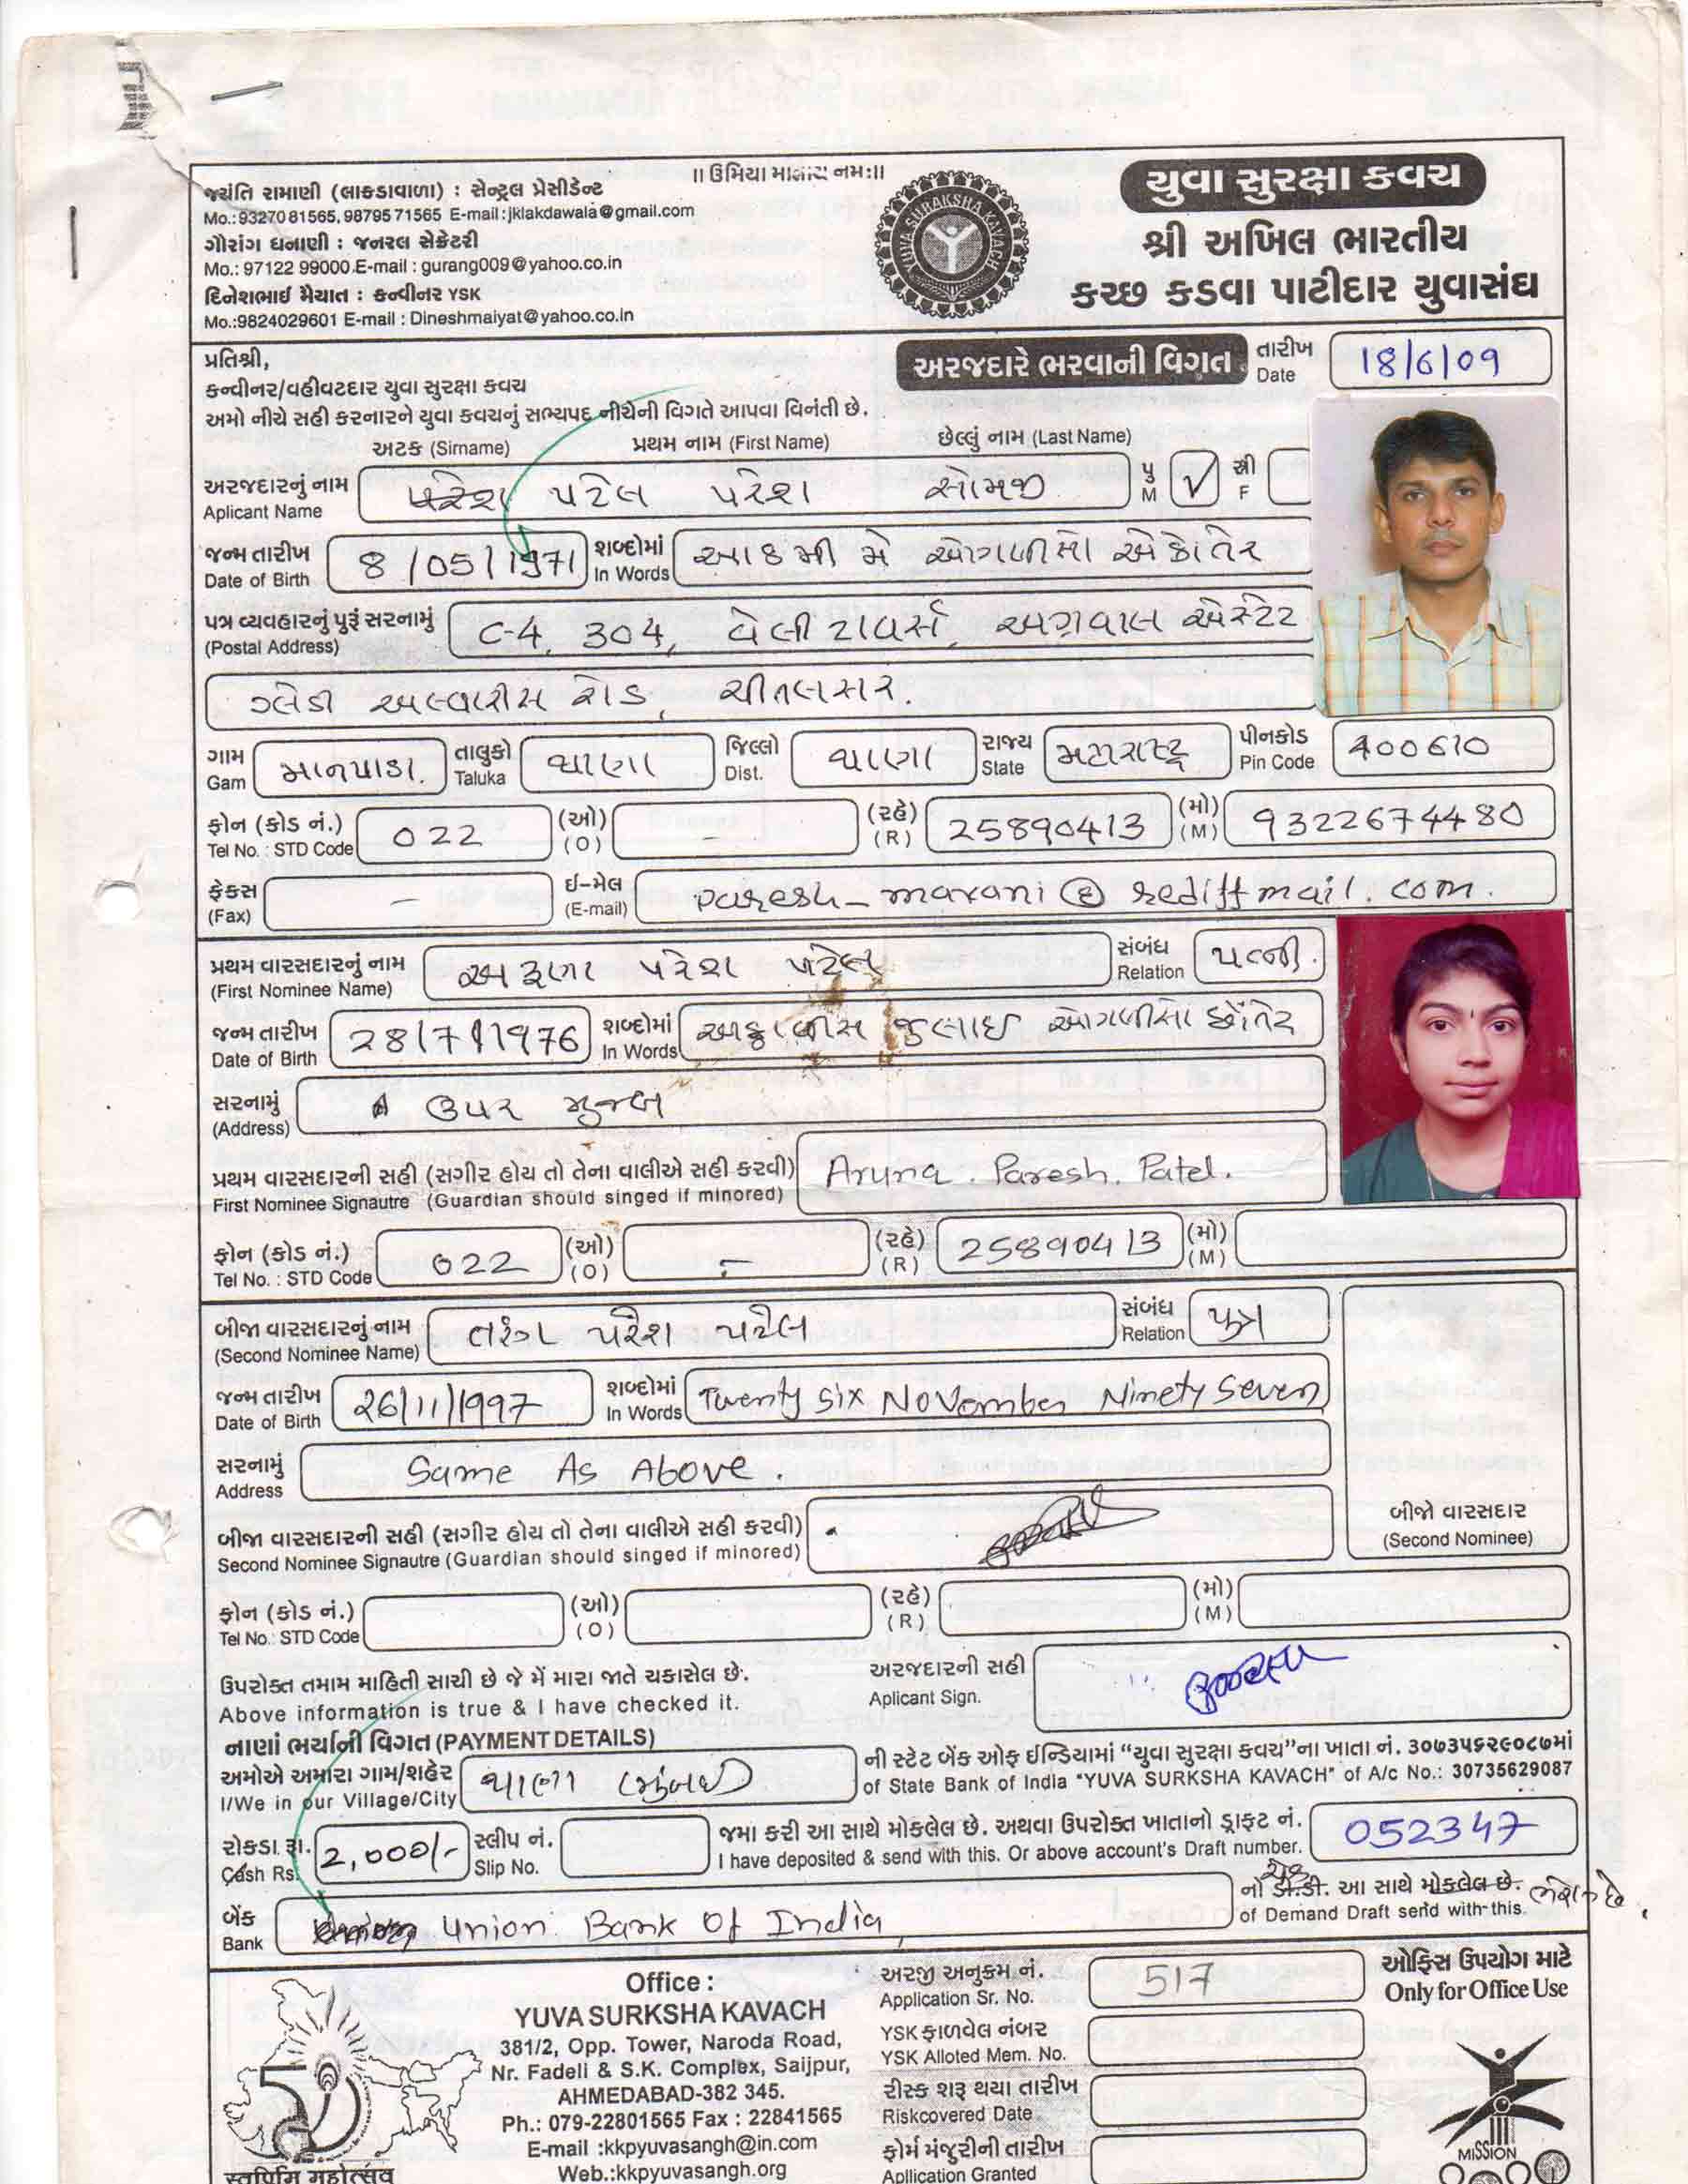 ।। ઉમિયા માતાય નમઃ।।
જયંતિ રામાણી (લાકડાવાળા) : સેન્ટ્રલ પ્રેસીડેન્ટ
Mo.:9327081565,9879571565 E-mail:jklakdawala@gmail.com
ગૌરાંગ ધનાણી : જનરલ સેક્રેટરી
Mo.: 97122 99000 E-mail : gurang009@yahoo.co.in
દિનેશભાઈ મૈયાત : કન્વીનર YSK
Mo.:9824029601 E-mail : Dineshmaiyat@yahoo.co.in
YUVA SURAKSHA KAVACH
યુવા સુરક્ષા કવચ
શ્રી અખિલ ભારતીય
કચ્છ કડવા પાટીદાર યુવાસંઘ
પ્રતિશ્રી,
કન્વીનર/વહીવટદાર યુવા સુરક્ષા કવચ
અમો નીચે સહી કરનારને યુવા કવચનું સભ્યપદ નીચેની વિગતે આપવા વિનંતી છે.
અરજદારે ભરવાની વિગત તારીખ Date 18/6/09
અટક (Sirname) પ્રથમ નામ (First Name) છેલ્લું નામ (Last Name)
અરજદારનું નામ Aplicant Name પરેશ પટેલ પરેશ સોમજી પુ M ✓ સ્ત્રી F
જન્મ તારીખ Date of Birth 8/05/1971 શબ્દોમાં In Words આઠમી મે ઓગણીસો એકોતેર
પત્ર વ્યવહારનું પુરૂં સરનામું (Postal Address) C-4, 304, વેલી ટાવર્સ, અગ્રવાલ એસ્ટેટ
ગ્લેડી અલ્વારીસ રોડ, ચીતલસર.
ગામ Gam માનપાડા. તાલુકો Taluka થાણા જિલ્લો Dist. થાણા રાજ્ય State મહારાષ્ટ્ર પીનકોડ Pin Code 400610
ફોન (કોડ નં.) Tel No. : STD Code 022 (ઓ) (O) - (રહે) (R) 25890413 (મો) (M) 9322674480
ફેક્સ (Fax) - ઈ-મેલ (E-mail) paresh_marani@rediffmail.com.
પ્રથમ વારસદારનું નામ (First Nominee Name) અરૂણા પરેશ પટેલ સંબંધ Relation પત્ની.
જન્મ તારીખ Date of Birth 28/7/1976 શબ્દોમાં In Words અઠ્ઠાવીસ જુલાઇ ઓગણીસો છોંતેર
સરનામું (Address) ઉપર મુજબ
પ્રથમ વારસદારની સહી (સગીર હોય તો તેના વાલીએ સહી કરવી) Aruna. Paresh. Patel.
First Nominee Signautre (Guardian should singed if minored)
ફોન (કોડ નં.) Tel No. : STD Code 022 (ઓ) (O) - (રહે) (R) 25890413 (મો) (M)
બીજા વારસદારનું નામ (Second Nominee Name) તરંગ પરેશ પટેલ સંબંધ Relation પુત્ર
જન્મ તારીખ Date of Birth 26/11/1997 શબ્દોમાં In Words Twenty Six November Ninety Seven
સરનામું Address Same As Above.
બીજા વારસદારની સહી (સગીર હોય તો તેના વાલીએ સહી કરવી)
Second Nominee Signautre (Guardian should singed if minored)
બીજો વારસદાર
(Second Nominee)
ફોન (કોડ નં.) Tel No.: STD Code (ઓ) (O) (રહે) (R) (મો) (M)
ઉપરોક્ત તમામ માહિતી સાચી છે જે મેં મારા જાતે ચકાસેલ છે.
Above information is true & I have checked it.
અરજદારની સહી
Aplicant Sign.
નાણાં ભર્યાની વિગત (PAYMENT DETAILS)
અમોએ અમારા ગામ/શહેર I/We in our Village/City થાણા (મુંબઇ) ની સ્ટેટ બેંક ઓફ ઈન્ડિયામાં “યુવા સુરક્ષા કવચ”ના ખાતા નં. ૩૦૭૩૫૬૨૯૦૮૭માં
of State Bank of India "YUVA SURKSHA KAVACH" of A/c No.: 30735629087
રોકડા રૂા. Cash Rs. 2,000/- સ્લીપ નં. Slip No. જમા કરી આ સાથે મોકલેલ છે. અથવા ઉપરોક્ત ખાતાનો ડ્રાફ્ટ નં. 052347
I have deposited & send with this. Or above account's Draft number.
બેંક Bank Union Bank Of India, નો ડી.ડી. આ સાથે મોકલેલ છે.
ચેક
of Demand Draft send with this.
Office :
YUVA SURKSHA KAVACH
381/2, Opp. Tower, Naroda Road,
Nr. Fadeli & S.K. Complex, Saijpur,
AHMEDABAD-382 345.
Ph.: 079-22801565 Fax : 22841565
E-mail :kkpyuvasangh@in.com
Web.:kkpyuvasangh.org
અરજી અનુક્રમ નં. Application Sr. No. 517
YSK ફાળવેલ નંબર
YSK Alloted Mem. No.
રીસ્ક શરૂ થયા તારીખ
Riskcovered Date
ફોર્મ મંજુરીની તારીખ
Apllication Granted
ઓફિસ ઉપયોગ માટે
Only for Office Use
MISSION